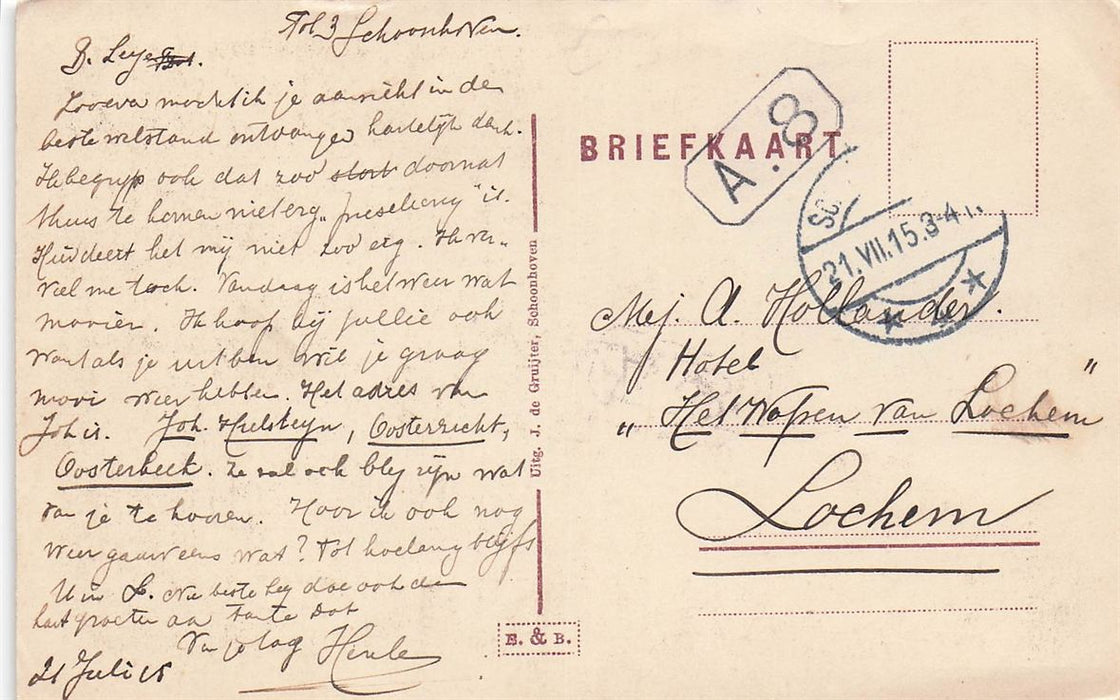 Tol 3 Schoonhoven.
B. Leye
Zooeven mocht ik je aanzicht in de
beste welstand ontvangen hartelijk dank.
Ik begrijp ook dat zoo doornat
thuis te komen niet erg is.
Hindert het mij niet zoo erg. Ik ver-
viel me toch. Vandaag is het weer wat
mooier. Ik hoop bij jullie ook
want als je uit ben wil je graag
mooi weer hebben. Het adres van
Joh is. Joh. Hulsteyn, Oosterzicht,
Oosterbeek. Ze zal ook blij zijn wat
van je te hooren. Hoor ik ook nog
weer gauw eens wat? Tot hoelang blijf
U in L. Nu beste Ley doe ook de
hart groeten aan Tante Dot
21 Juli 15
Uitg. J. de Gruijter, Schoonhoven
E. & B.
BRIEFKAART
A.8
SC
21.VII.15.3-4
Mej. A. Hollander.
Hotel
„Het Wapen van Lochem”
Lochem